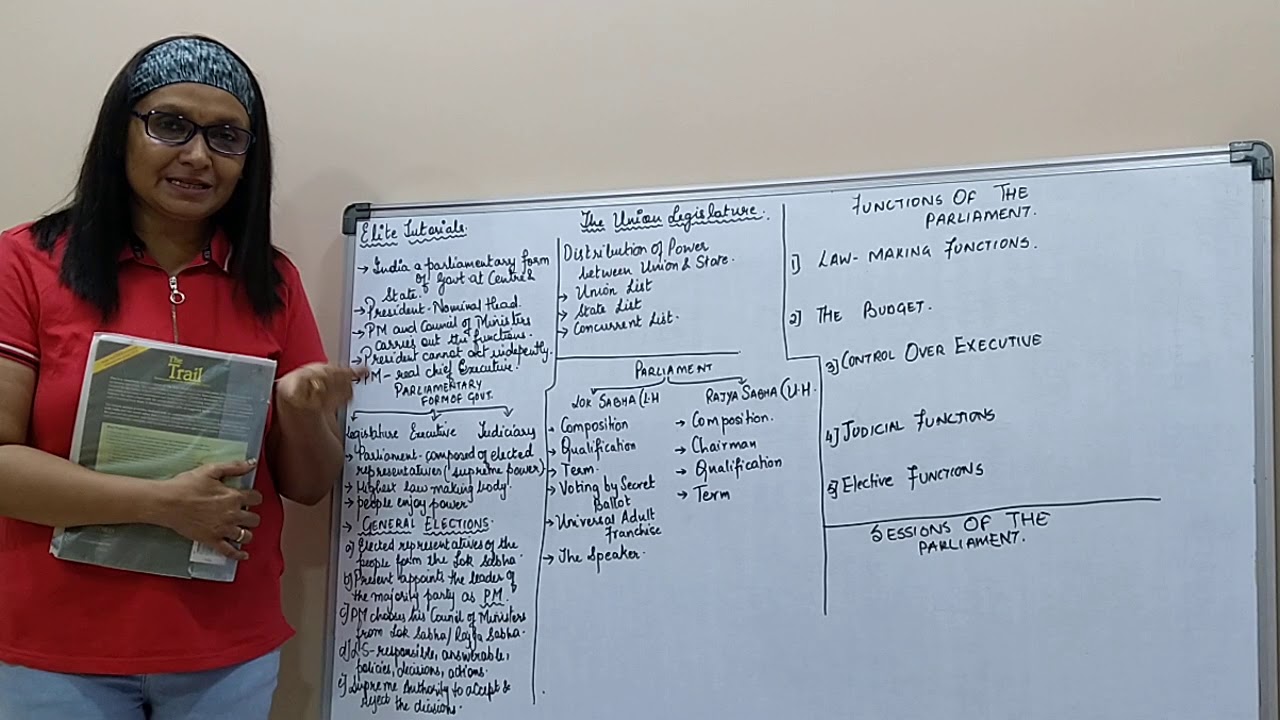 The Trail
Elite Tutorials.
→ India a parliamentary form
of Govt at Centre &
State.
→ President - Nominal Head.
→ PM and Council of Ministers
carries out the functions.
→ President cannot act indepently.
→ PM - real chief Executive.
PARLIAMENTARY
FORM OF GOVT.
Legislature Executive Judiciary
→ Parliament - composed of elected
representatives (supreme power)
→ Highest law making body.
→ people enjoy power
→ GENERAL ELECTIONS.
a) Elected representatives of the
people form the Lok Sabha.
b) Present appoints the leader of
the majority party as PM.
c) PM choses his Council of Ministers
from Lok Sabha/Rajya Sabha.
d) LS - responsible, answerable,
policies, decisions, actions.
e) Supreme Authority to accept &
reject the decisions.
The Union Legislature.
Distribution of Power
between Union & State.
→ Union List
→ State List
→ Concurrent List.
PARLIAMENT
LOK SABHA (L·H
→ Composition
→ Qualification
→ Term.
→ Voting by Secret
Ballot
→ Universal Adult
Franchise
→ The Speaker.
RAJYA SABHA (U·H.
→ Composition.
→ Chairman
→ Qualification
→ Term
FUNCTIONS OF THE
PARLIAMENT.
1] LAW-MAKING FUNCTIONS.
2] THE BUDGET.
3] CONTROL OVER EXECUTIVE
4] JUDICIAL FUNCTIONS
5] Elective FUNCTIONS
SESSIONS OF THE
PARLIAMENT.